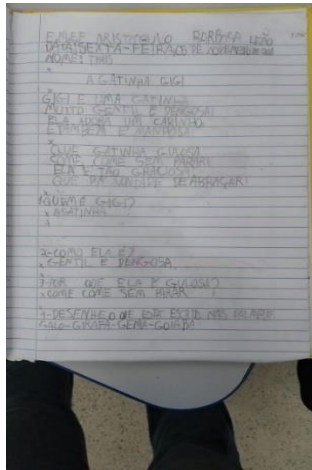 E.M.E.F ARISTOTULO BORBOSA LEÃO
DATA: SEXTA-FEIRA, DE NOVEMBRO
NOME:
A GATINHA GIGI
GIGI E UMA GATINHA
MUITO GENTIL E DENGOSA!
ELA ADORA UM CARINHO,
E TAMBEM É MANHOSA!
QUE GATINHA GULOSA
COME COME SEM PARAR!
ELA E TÃO GRACIOSA!
QUE DÁ VONTADE DE ABRAÇAR!
1-QUEM É GIGI?
A GATINHA
2-COMO ELA E?
GENTIL E DENGOSA
3-POR QUE ELA E GULOSA?
COME COME SEM PARAR
4-DESENHE O QUE ESTA ESCRITO NAS PALAVRAS
GALO-GIRAFA-GEMA-GOIABA